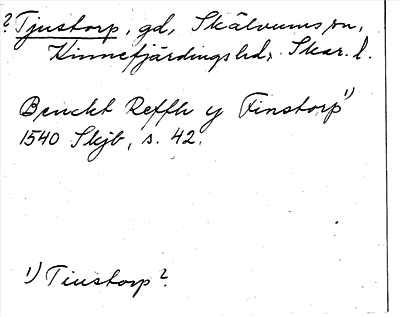 ? Tjustorp, gd, Skälvums sn,
Kinnefjärdings hd, Skar. l.
Benckt Reffh y Finstorp 1)
1540 Skjb, s. 42.
1) Tiustorp?